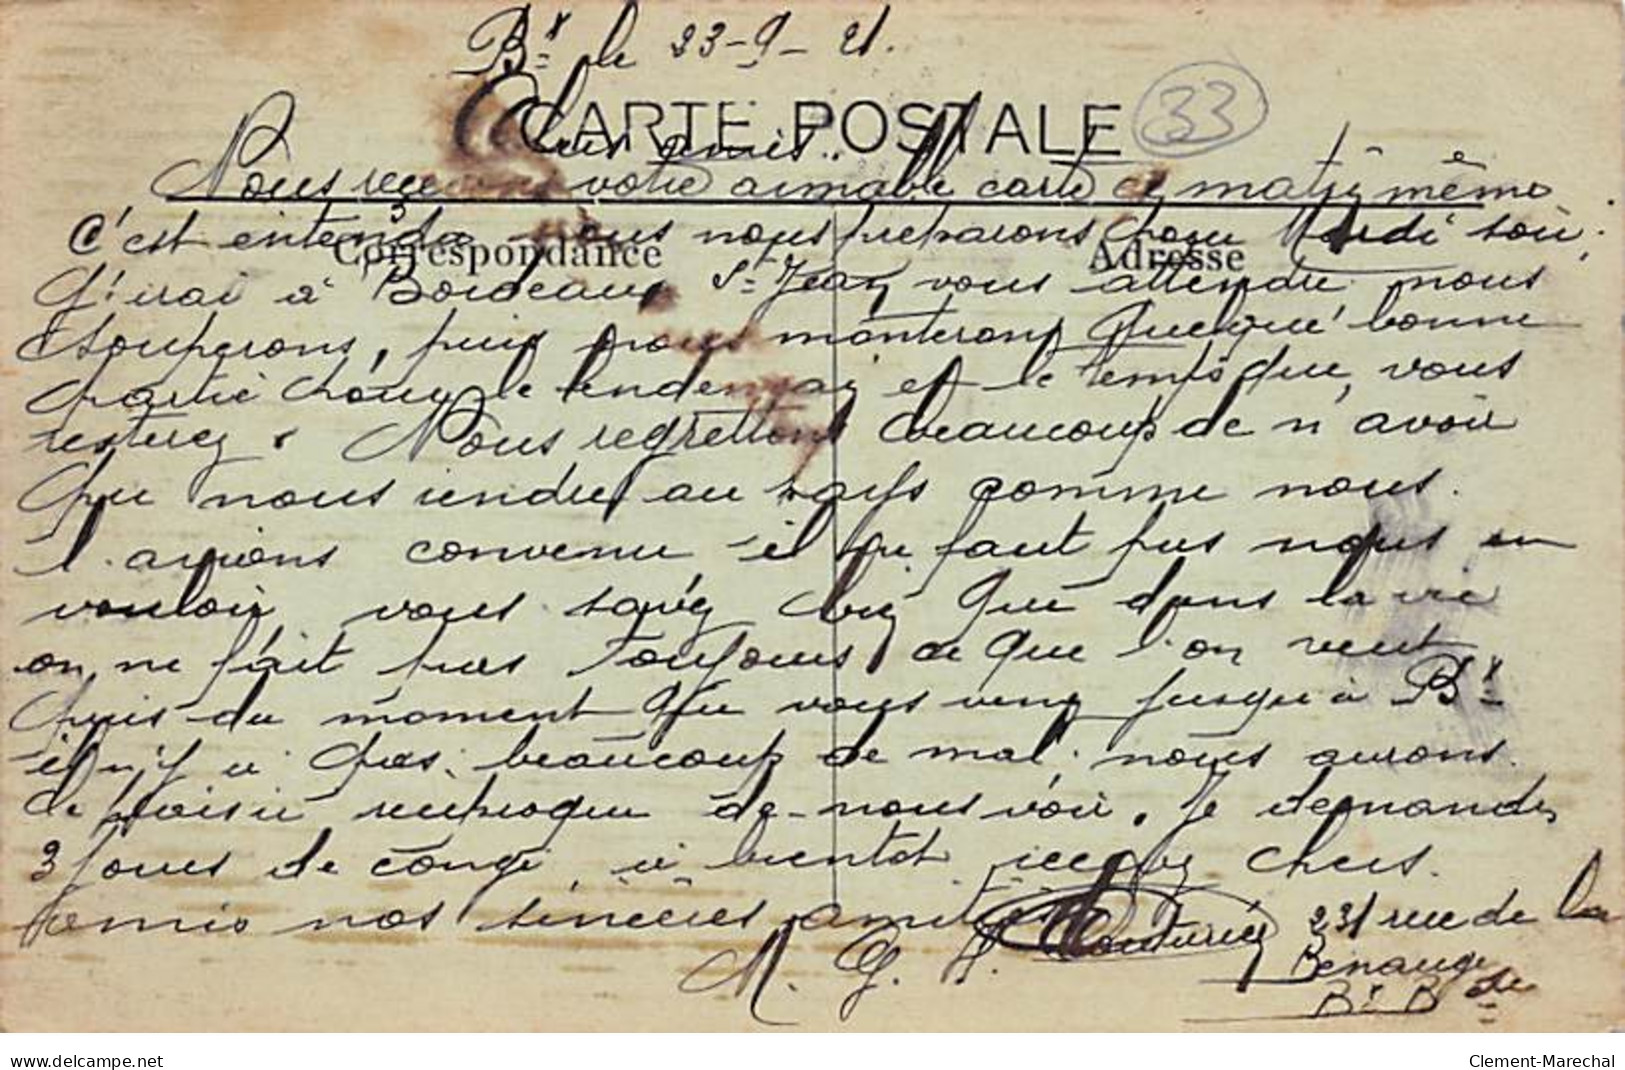 Bx le 23-9-21.
CARTE POSTALE 33
Chers amis..
Nous recevons votre aimable carte ce matin même
c'est entendu nous nous preparons pour Mardi soir.
Correspondance Adresse
J'irai à Bordeaux St Jean vous attendre nous
souperons, puis nous monterons quelque bonne
partie pour le lendemain et le temps que vous
resterez. Nous regrettons beaucoup de n'avoir
pu nous rendre au pays comme nous.
l'avions convenu il ne faut pas nous en
vouloir vous savez bien que dans la vie
on ne fait pas toujours ce que l'on veut
puis du moment que vous venez jusqu'à Bx
il n'y a pas beaucoup de mal. nous aurons.
le plaisir reciproque de nous voir. Je demande
3 jours de congé, à bientot recevez chers.
amis nos sincères amitiés
M. G. P. Couturier 231 rue de la
Benauge
Bx Bde
www.delcampe.net Clement-Marechal